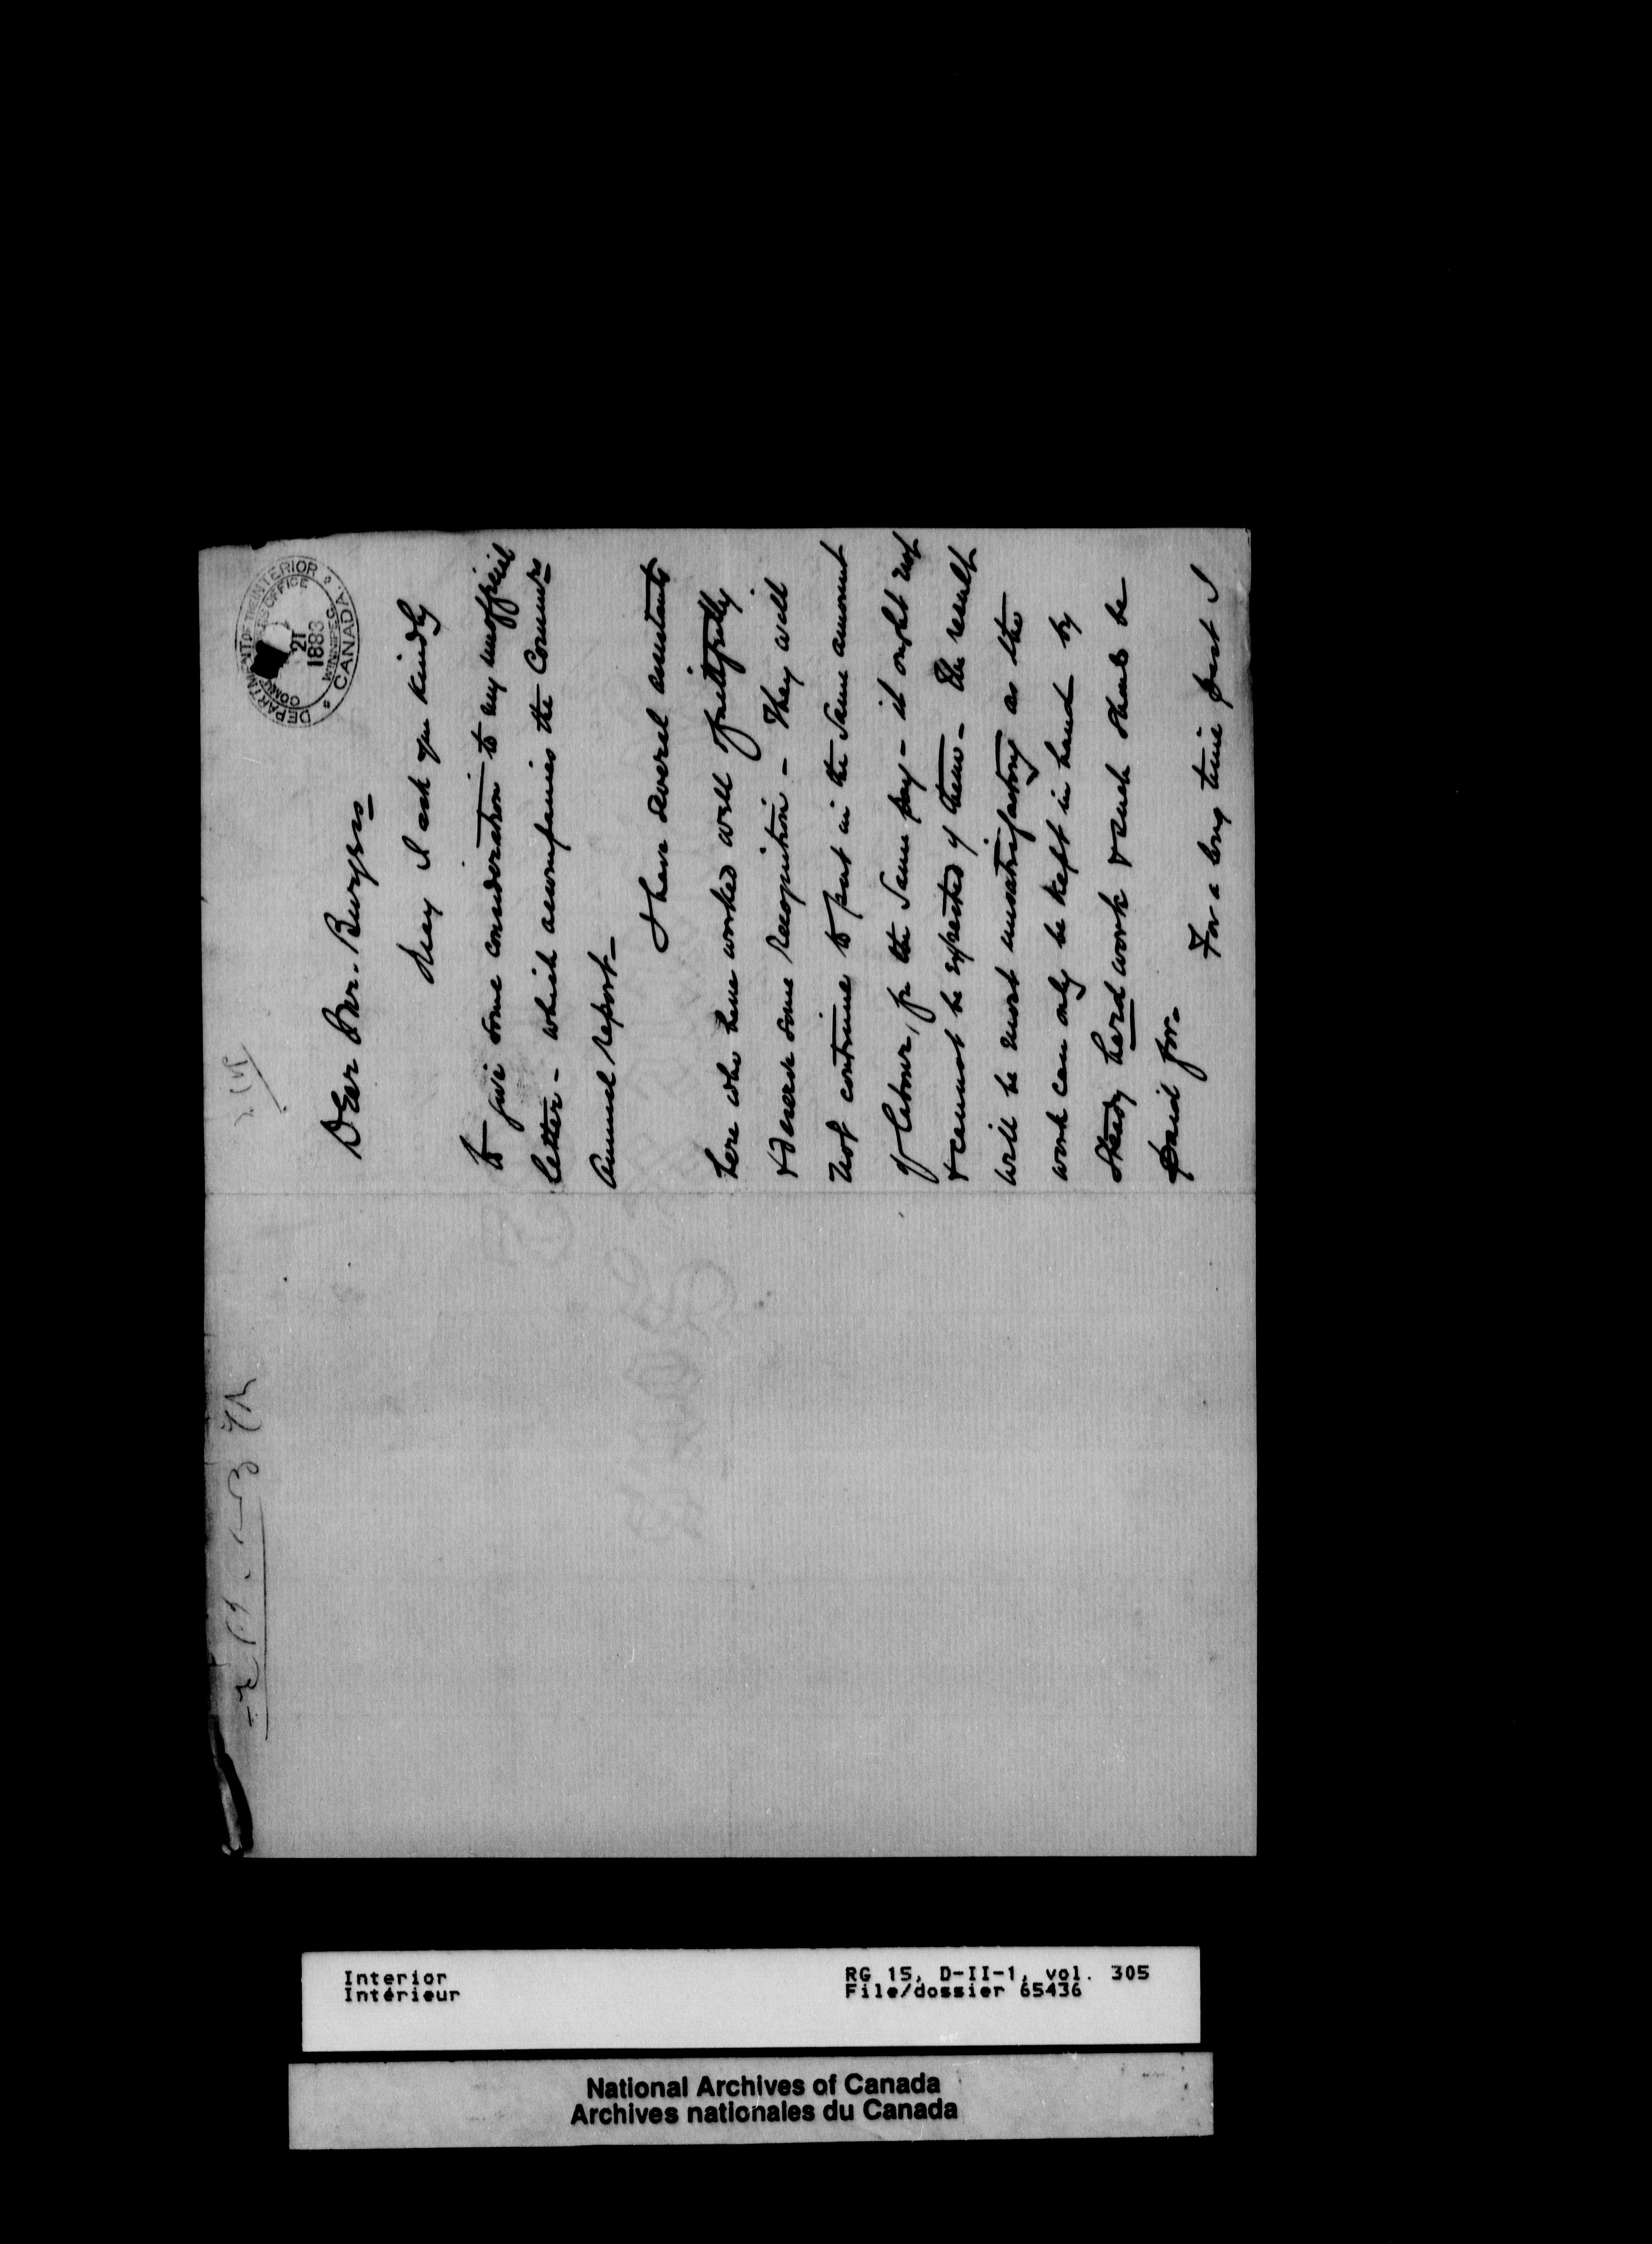 DEPARTMENT OF THE INTERIOR
OFFICE
21
1883
WINNIPEG
CANADA
Dear Mr. Burgess
May I ask you kindly
to give some consideration to my unofficial
letter - which accompanies the Commrs
Annual report -
I have several assistants
here who have worked well & faithfully
& deserve some recognition - They will
not continue to put in the same amount
of labour, for the same pay - it ought not
& cannot be expected of them - The result
will be most unsatisfactory as the
work can only be kept in hand by
steady hard work & such should be
paid for -
For a long time past I
Interior
Intérieur
RG 15, D-II-1, vol. 305
File/dossier 65436
National Archives of Canada
Archives nationales du Canada